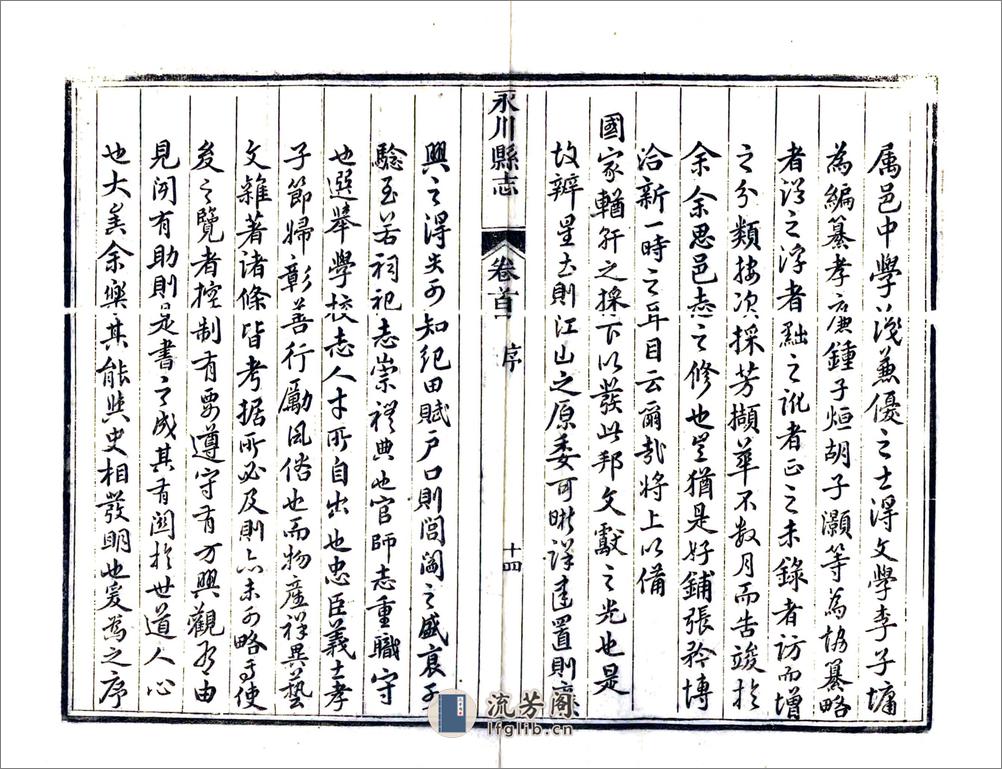 属邑中學識兼優之士得文學李子墉
為編纂孝廉鍾子烜胡子灝等為協纂略
者詳之浮者黜之訛者正之未錄者訪而增
之分類按次採芳擷華不數月而告竣於
余余思邑志之修也豈猶是好鋪張矜博
洽新一時之耳目云爾哉將上以備
國家輶軒之採下以發此邦文獻之光也是
故辨星土則江山之原委可晰詳建置則廢
永川縣志
卷首
序
十四
興之得失可知紀田賦戶口則閭閻之盛衰可
驗至若祠祀志崇禮典也官師志重職守
也選舉學校志人才所自出也忠臣義士孝
子節婦彰善行勵風俗也而物產祥異藝
文雜著諸條皆考据所必及則亦未可略焉使
後之覽者控制有要遵守有方興觀有由
見聞有助則是書之成其有關於世道人心
也大矣余樂其能與史相發明也爰為之序
流芳閣
lfglib.cn